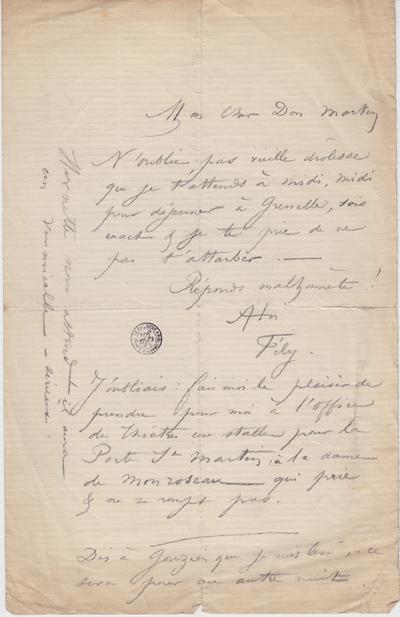 Mon cher Don Martin
N'oublie pas vieille drôlesse
que je t'attends à midi, midi
pour déjeuner à Grenelle, sois
exact & je te prie de ne
pas t'attarder. —
Réponds malhonnête !
A toi
Fély.
J'oubliais : fais moi le plaisir de
prendre pour moi à l'office
des théâtres une stalle pour la
Porte St Martin, à la dame
de Monsoreau qui prie
& ne se rompt pas.
Dis à Gouzien que je
sera pour une autre nuit.
nous attend il aura
un vermicelle - sérieux.